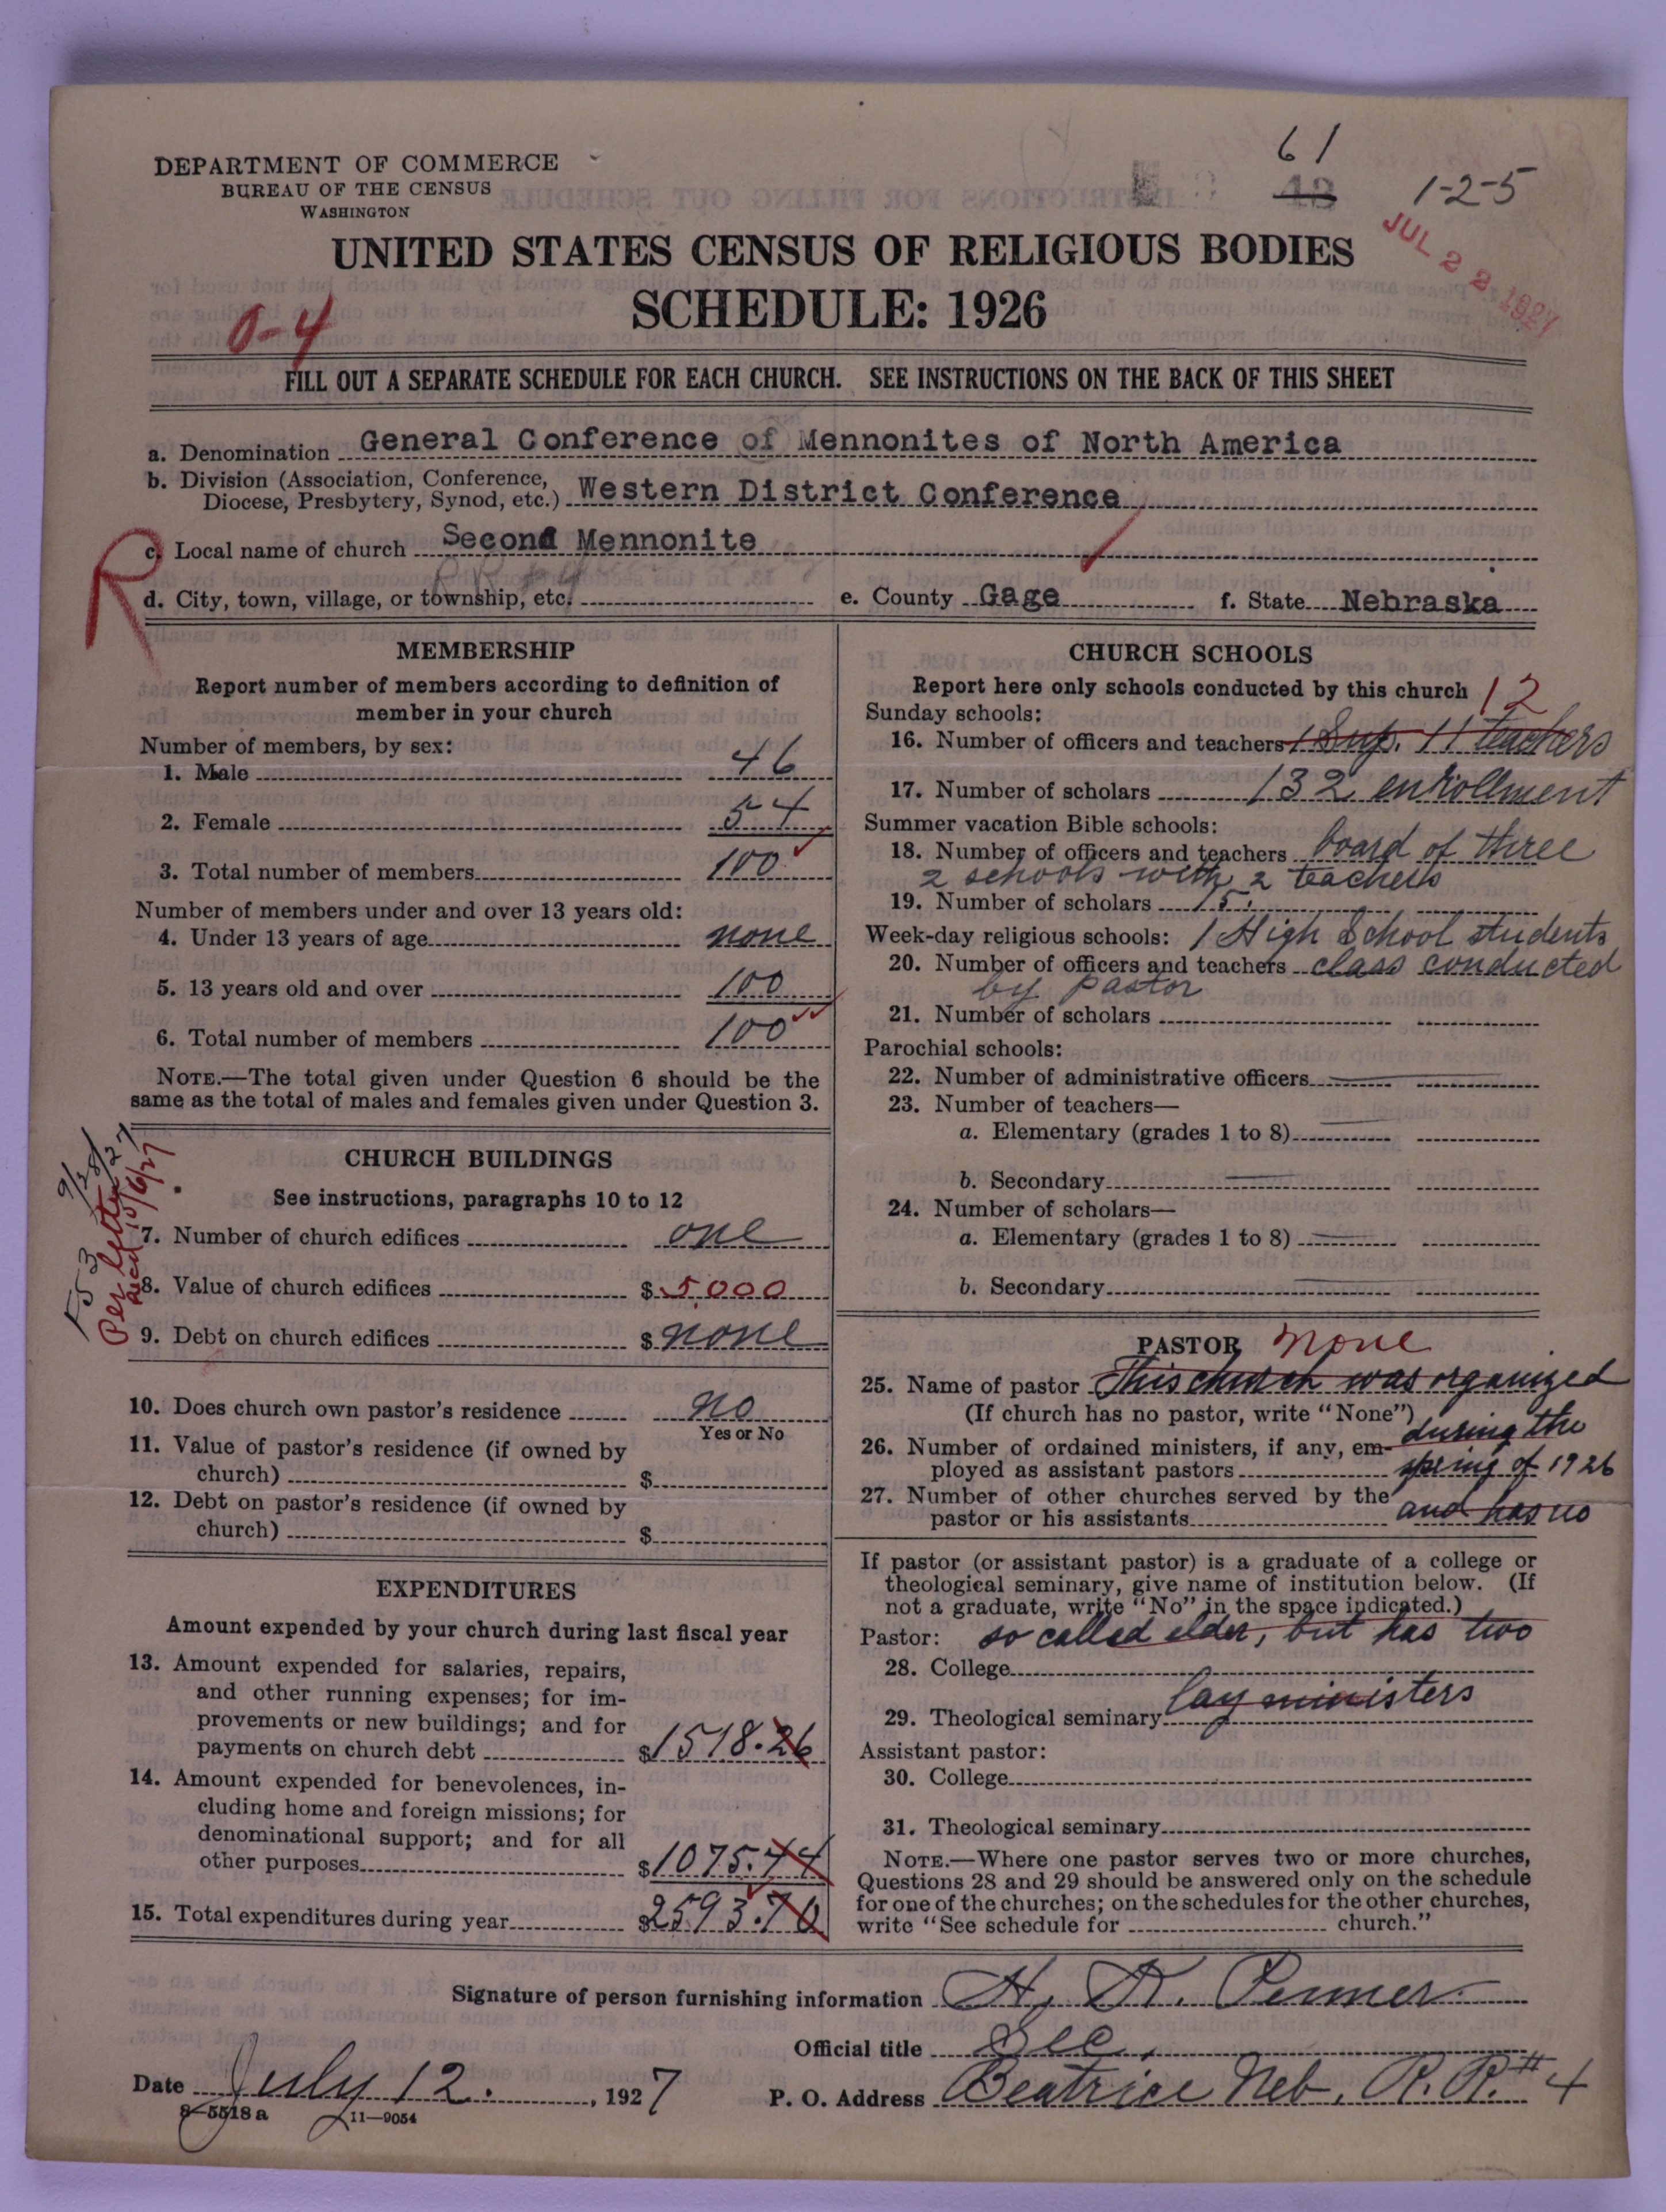 61
DEPARTMENT OF COMMERCE
BUREAU OF THE CENSUS
WASHINGTON
43
1-2-5
JUL 22 1927
UNITED STATES CENSUS OF RELIGIOUS BODIES
SCHEDULE: 1926
0-4
FILL OUT A SEPARATE SCHEDULE FOR EACH CHURCH. SEE INSTRUCTIONS ON THE BACK OF THIS SHEET
a. Denomination General Conference of Mennonites of North America
b. Division (Association, Conference,
Diocese, Presbytery, Synod, etc.) Western District Conference
R
c. Local name of church Second Mennonite
d. City, town, village, or township, etc. e. County Gage f. State Nebraska
MEMBERSHIP
Report number of members according to definition of
member in your church
Number of members, by sex:
1. Male 46
2. Female 54
3. Total number of members 100
Number of members under and over 13 years old:
4. Under 13 years of age none
5. 13 years old and over 100
6. Total number of members 100
NOTE.—The total given under Question 6 should be the
same as the total of males and females given under Question 3.
CHURCH BUILDINGS
See instructions, paragraphs 10 to 12
7. Number of church edifices one
8. Value of church edifices $ 5,000
9. Debt on church edifices $ none
F53 9/28/27
Per letter
Recd 10/6/27
10. Does church own pastor's residence no
Yes or No
11. Value of pastor's residence (if owned by
church) $
12. Debt on pastor's residence (if owned by
church) $
EXPENDITURES
Amount expended by your church during last fiscal year
13. Amount expended for salaries, repairs,
and other running expenses; for im-
provements or new buildings; and for
payments on church debt $1518.26
14. Amount expended for benevolences, in-
cluding home and foreign missions; for
denominational support; and for all
other purposes $1075.44
15. Total expenditures during year $2593.70
CHURCH SCHOOLS
Report here only schools conducted by this church 12
Sunday schools:
16. Number of officers and teachers 1 Sup. 11 teachers
17. Number of scholars 132 enrollment
Summer vacation Bible schools:
18. Number of officers and teachers board of three
2 schools with 2 teachers
19. Number of scholars 15.
Week-day religious schools: 1 High School students
20. Number of officers and teachers class conducted
by pastor
21. Number of scholars
Parochial schools:
22. Number of administrative officers
23. Number of teachers—
a. Elementary (grades 1 to 8)
b. Secondary
24. Number of scholars—
a. Elementary (grades 1 to 8)
b. Secondary
PASTOR None
25. Name of pastor This church was organized
(If church has no pastor, write "None") during the
26. Number of ordained ministers, if any, em-
ployed as assistant pastors spring of 1926
27. Number of other churches served by the and has no
pastor or his assistants
If pastor (or assistant pastor) is a graduate of a college or
theological seminary, give name of institution below. (If
not a graduate, write "No" in the space indicated.)
Pastor: so called elder, but has two
28. College
lay ministers
29. Theological seminary
Assistant pastor:
30. College
31. Theological seminary
NOTE.—Where one pastor serves two or more churches,
Questions 28 and 29 should be answered only on the schedule
for one of the churches; on the schedules for the other churches,
write "See schedule for church."
Signature of person furnishing information H. R. Penner
Official title Sec.
Date July 12. , 1927 P. O. Address Beatrice Neb. R.R. # 4
8—5518 a 11—9054